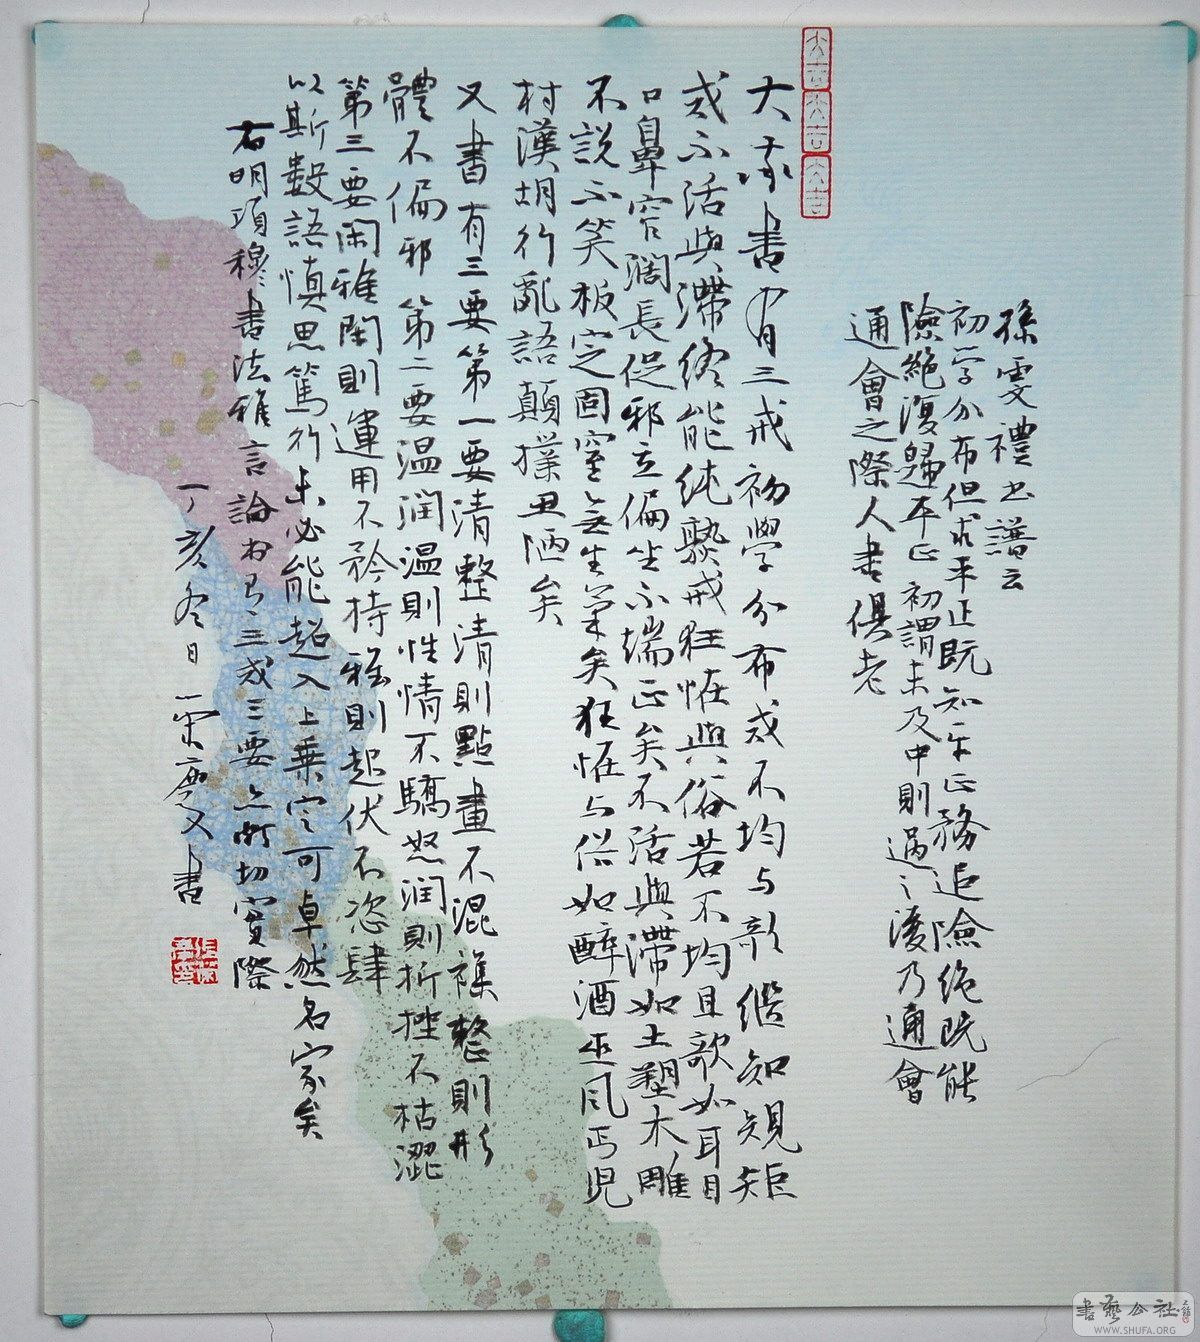 孫虔禮書譜云
初學分布但求平正既知平正務追險絶既能
險絶復歸平正初謂未及中則過之後乃通會
通會之際人書俱老
大承書有三戒初學分布戒不均与欹繼知規矩
戒不活與滯終能純熟戒狂怪與俗若不均且欹如耳目
口鼻窄闊長促邪立偏坐不端正矣不活與滯如土塑木雕
不說不笑板定固窒無生氣矣狂怪与俗如醉酒巫風丐児
村漢胡行亂語顛撲丑陋矣
又書有三要第一要清整清則點畫不混襍整則形
體不偏邪第二要温潤温則性情不驕怒潤則折挫不枯澀
第三要閑雅閑則運用不矜持雅則起伏不恣肆
以斯數語慎思篤行未必能超入上乗定可卓然名家矣
右明項穆書法雅言論書有三戒三要亦甚切實際
丁亥冬日 慶又書
書藝公社
WWW.SHUFA.ORG